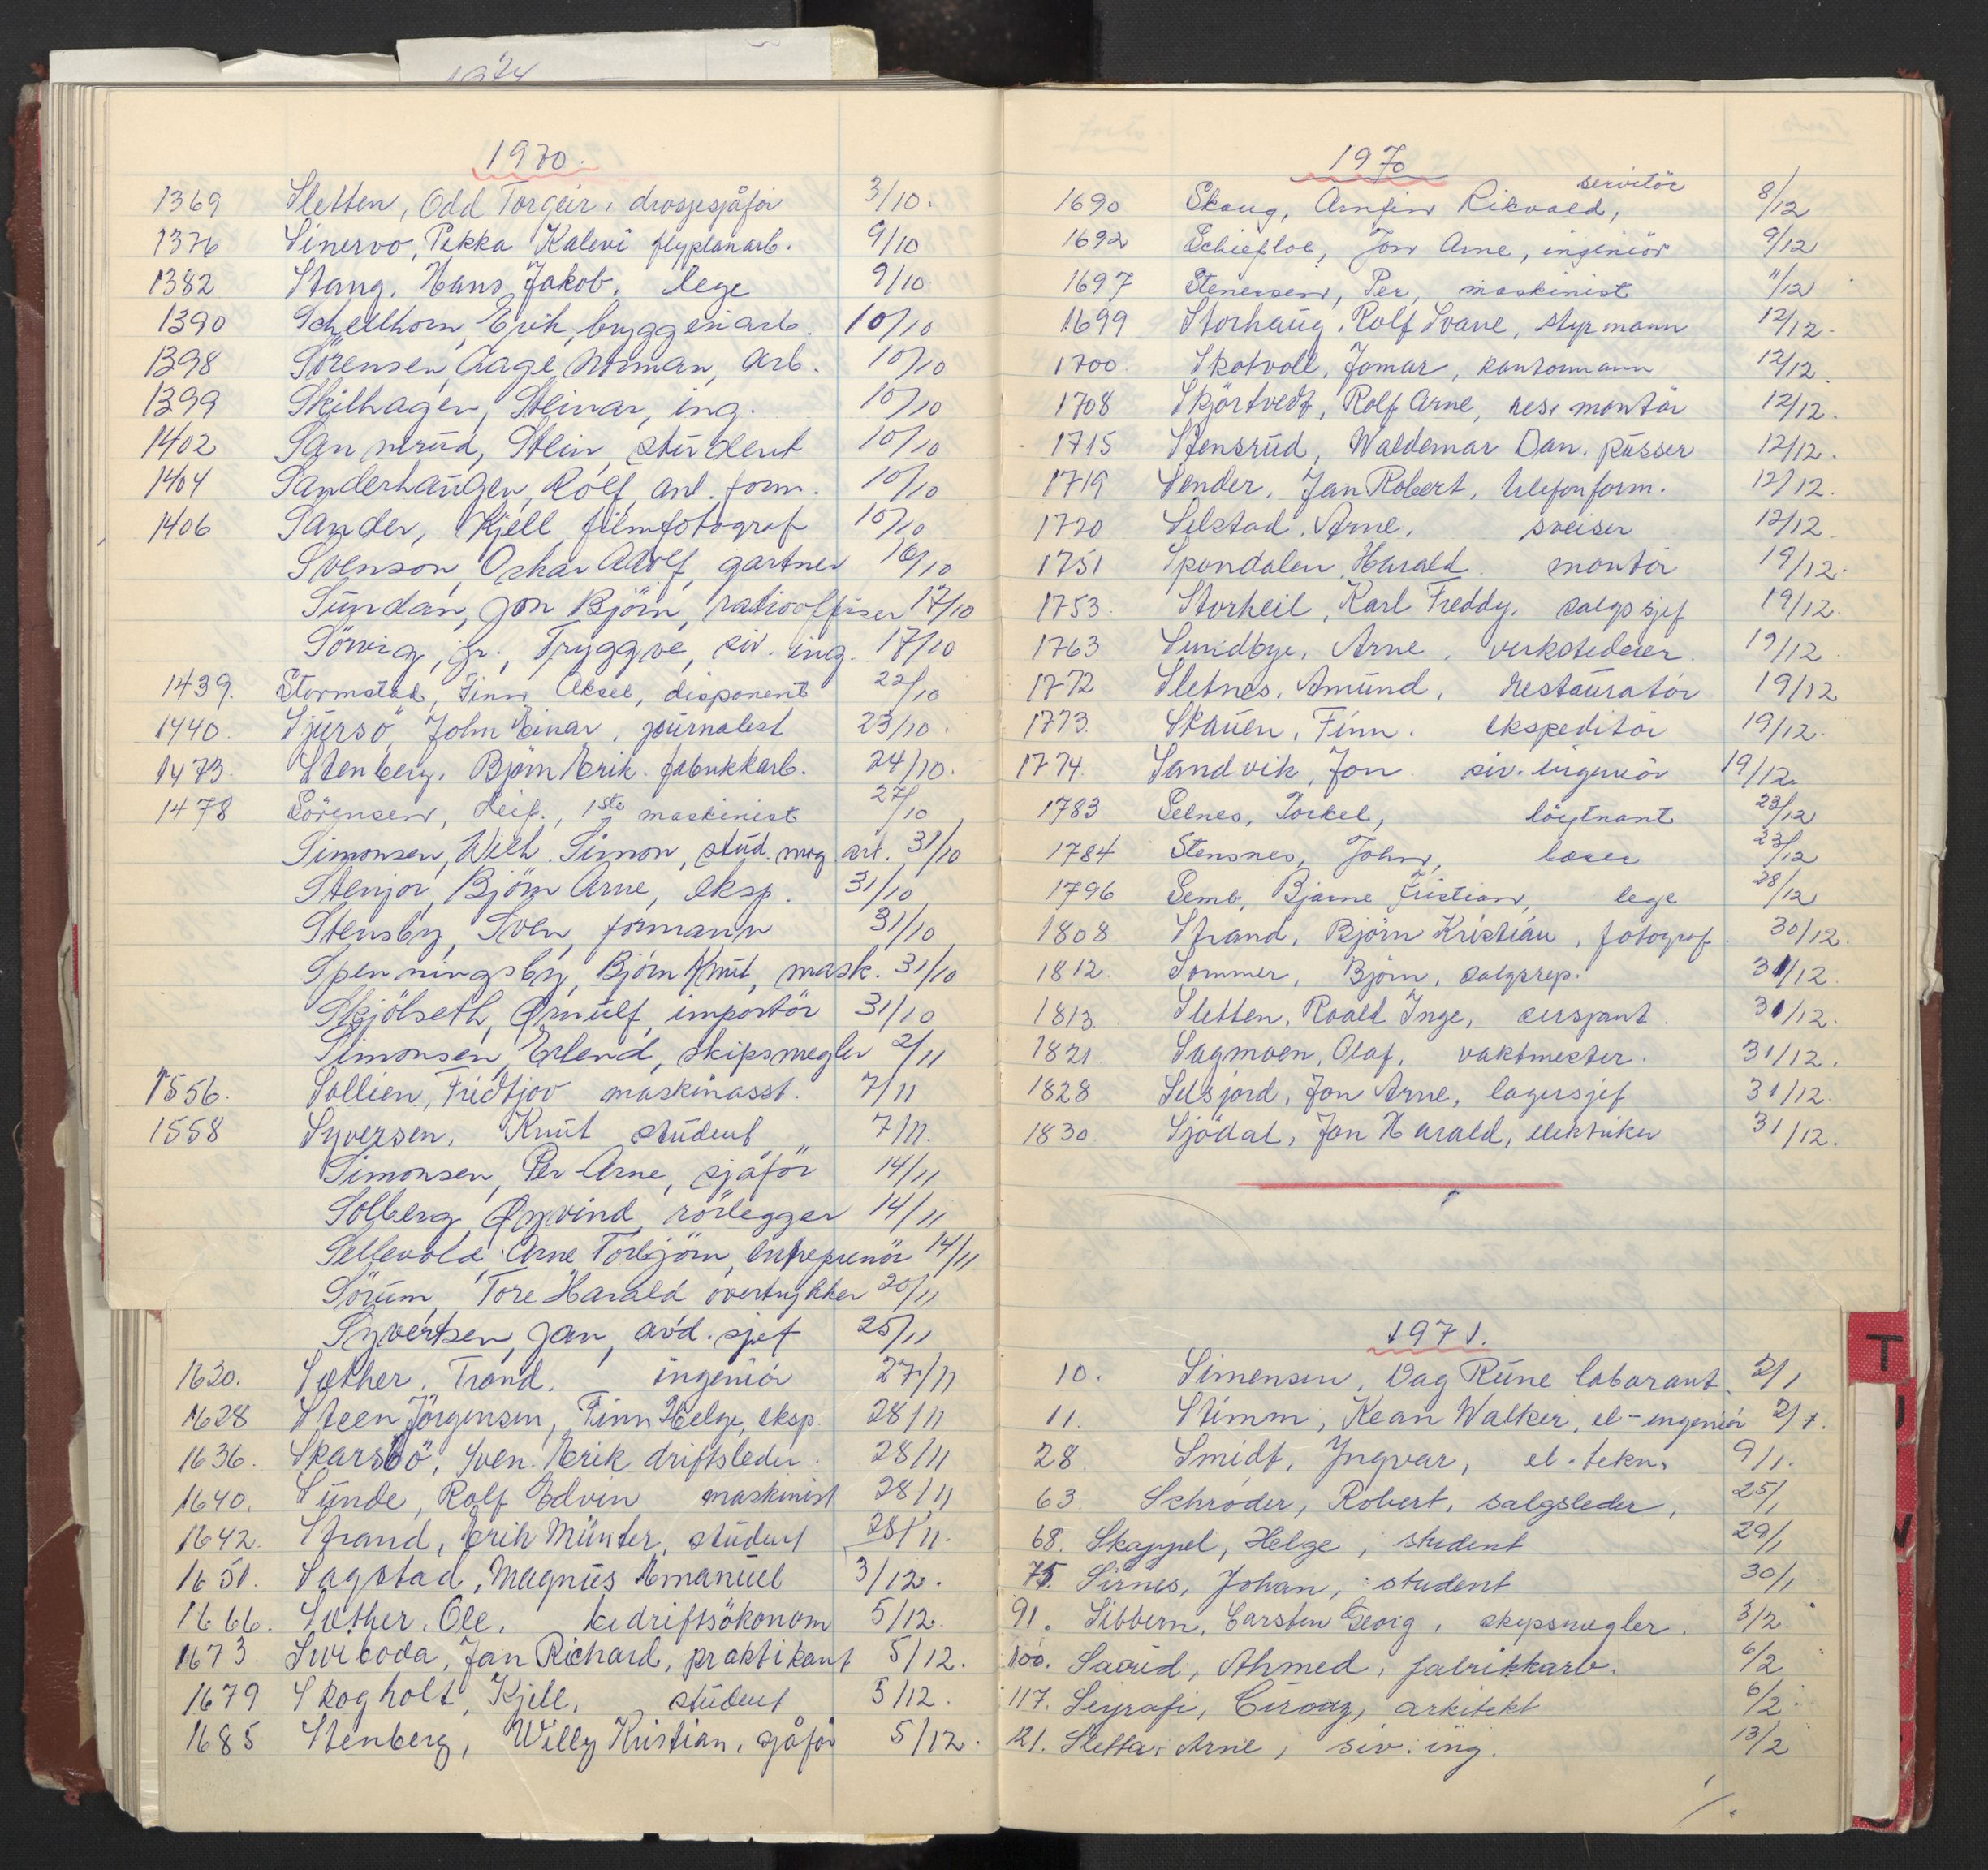 1974
1970.
1369 Sletten, Odd Torgeir, drosjesjåför 3/10.
1376 Sinervo, Pekka Kalevi flyplanarb. 9/10
1382 Stang, Hans Jakob, lege 9/10
1390 Schellhorn, Erik, bryggeriarb. 10/10
1398 Sörensen, Aage Norman, arb. 10/10
1399 Skilhagen, Steinar, ing. 10/10
1402 Sannerud, Stein, student 10/10
1404 Sanderhaugen, Rolf, anl. form. 10/10
1406 Sander, Kjell, filmfotograf 10/10
Svenson, Oskar Adolf, gartner 16/10
Sundan, Jon Björn, radiooffiser 17/10
Sörvig, jr., Tryggve, siv. ing. 17/10
1439. Stormstad, Finn Aksel, disponent 22/10
1440. Sjursö, John Einar, journalist 23/10.
1473. Stenberg, Björn Erik. fabrikkarb. 24/10.
1478 Sörensen, Leif., 1ste maskinist 27/10
Simonsen, Wilh. Simon, stud. mag. art. 31/10
Stenjor, Björn Arne, eksp. 31/10
Stensby, Sven, formann 31/10
Spenningsby, Björn Knut, mask. 31/10
Skjölseth, Ørnulf, importör 31/10
Simonsen, Erlend, skipsmegler 2/11
1556. Sollien, Fridtjov maskinasst. 7/11
1558 Syversen, Knut student 7/11.
Simonsen, Per Arne, sjåför 14/11
Solberg, Øyvind, rörlegger 14/11
Sellevold, Arne Torbjörn, entreprenör 14/11
Sörum, Tore Harald overtrykker 20/11
Syvertsen, Jan, avd. sjef 25/11
1620. Sæther, Trond, ingeniör 27/11
1628 Steen Jörgensen, Finn Helge, eksp. 28/11
1636. Skarsbö, Sven Erik driftsleder. 28/11
1640. Sunde, Rolf Edvin maskinist 28/11
1642. Strand, Erik Münter, student 28/11.
1651. Sagstad, Magnus Emanuel 3/12.
1666. Sæther, Ole, bedriftsökonom 5/12.
1673 Svoboda, Jan Richard, praktikant 5/12.
1679 Skogholt, Kjell, student 5/12.
1685 Stenberg, Willy Kristian, sjåför 5/12.
1970
servitör
1690 Skaug, Arnfinn Rikvald, 8/12
1692 Schiefloe, Jon Arne, ingeniör 9/12
1697 Stenersen, Per, maskinist 11/12
1699 Storhaug, Rolf Svane, styrmann 12/12.
1700 Skotvoll, Jomar, kontormann 12/12.
1708 Skjörtvedt, Rolf Arne, heismontör 12/12.
1715 Stensrud, Waldemar Dan. pusser 12/12.
1719 Sender, Jan Robert, telefonform. 12/12.
1720 Selstad, Arne, sveiser 12/12.
1751 Spondalen, Harald montör 19/12.
1753. Storheil, Karl Freddy, salgssjef 19/12.
1763 Sundbye, Arne, verkstedeier. 19/12
1772 Sletnes, Amund, restauratör 19/12
1773. Skauen, Finn. ekspeditör 19/12.
1774. Sandvik, Jon siv. ingeniör 19/12.
1783 Selnes, Torkel, löytnant 22/12
1784 Stensnes, John, 23/12
1796 Semb, Bjarne Kristian, lege 28/12
1808 Strand, Björn Kristian, fotograf. 30/12.
1812. Sommer, Björn, salgsrep. 31/12.
1813 Sletten, Roald Inge, sersjant 31/12.
1821 Sagmoen, Olaf, vaktmester. 31/12.
1828 Selsjord, Jon Arne, lagersjef 31/12.
1830 Sjödal, Jan Harald, elektriker 31/12.
1971.
10. Simensen, Dag Rune laborant. 2/1
11. Stimm, Kean Walker, el-ingeniör 2/1.
28 Smidt, Yngvar, el. tekn. 9/1.
63 Schröder, Robert, salgsleder, 25/1
68. Skappel, Helge, student 29/1
75. Sirnes, Johan, student 30/1
91. Sibbern, Carsten Georg, skipsmegler. 3/2
100. Saaid, Ahmed, fabrikkarb. 6/2
117. Seyrafi, arkitekt 6/2
121. Sletta, Arne, siv. ing. 13/2
T